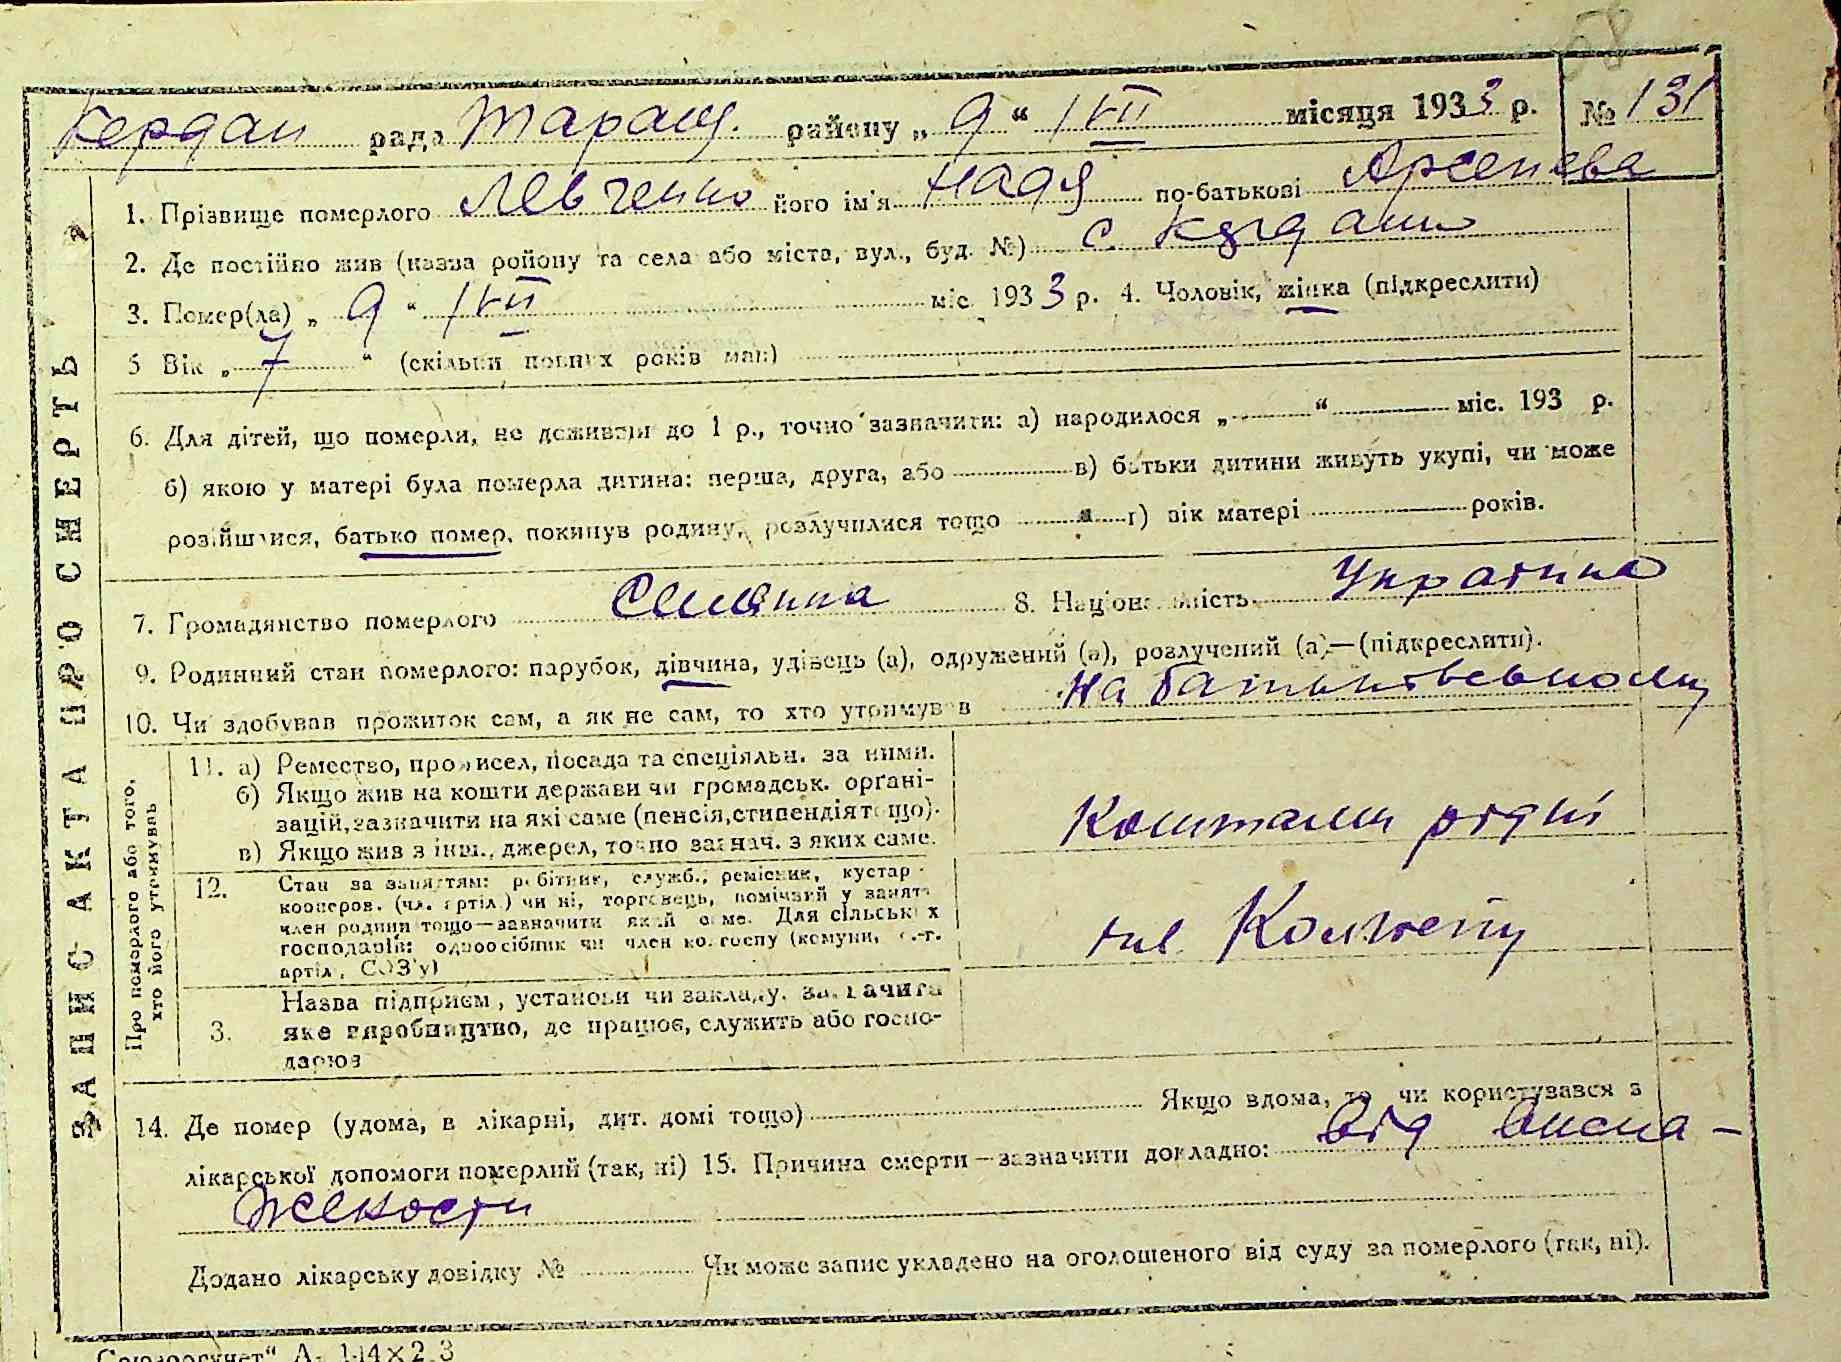 58
Кердан рада Таращ. району „ 9 “ /VII місяця 1933 р. № 131
1. Прізвище померлого Левченко його ім'я Надя по-батькові Арсенева
2. Де постійно жив (назва району та села або міста, вул., буд. №) с. Кердани
3. Помер(ла) „ 9 “ /VII міс. 1933 р. 4. Чоловік, жінка (підкреслити)
5 Вік „ 7 “ (скільки повних років мав)
6. Для дітей, що померли, не доживши до 1 р., точно зазначити: а) народилося „ “ міс. 193 р.
б) якою у матері була померла дитина: перша, друга, або в) батьки дитини живуть укупі, чи може
розійшлися, батько помер, покинув родину, розлучилися тощо г) вік матері років.
7. Громадянство померлого Селянка 8. Національність
9. Родинний стан померлого: парубок, дівчина, удівець (а), одружений (а), розлучений (а)—(підкреслити).
10. Чи здобував прожиток сам, а як не сам, то хто утримував На батьковському
ЗАПИС АКТА ПРО СМЕРТЬ
Про померлого або того,
хто його утримував
11. а) Ремество, промисел, посада та спеціяльн. за ними.
б) Якщо жив на кошти держави чи громадськ. організацій, зазначити на які саме (пенсія, стипендія тощо).
в) Якщо жив з інш., джерел, точно зазнач. з яких саме.
Коштами рідні
12. Стан за заняттям: робітник, служб., ремісник, кустар
кооперов. (чл. артіл.) чи ні, торговець, помічний у занятт
член родини тощо—зазначити який саме. Для сільських
господарів: одноосібник чи член колгоспу (комуни, с.-г.
артіл, СОЗ'у)
чл. Колгоспу
3. Назва підприєм, установи чи закладу, зазначити
яке виробництво, де працює, служить або госпо-
дарює
14. Де помер (удома, в лікарні, дит. домі тощо) Якщо вдома, то чи користувався з
лікарської допомоги померлий (так, ні) 15. Причина смерти—зазначити докладно: Від висна-
жености
Додано лікарську довідку № Чи може запис укладено на оголошеного від суду за померлого (так, ні).
А- 114×2 3